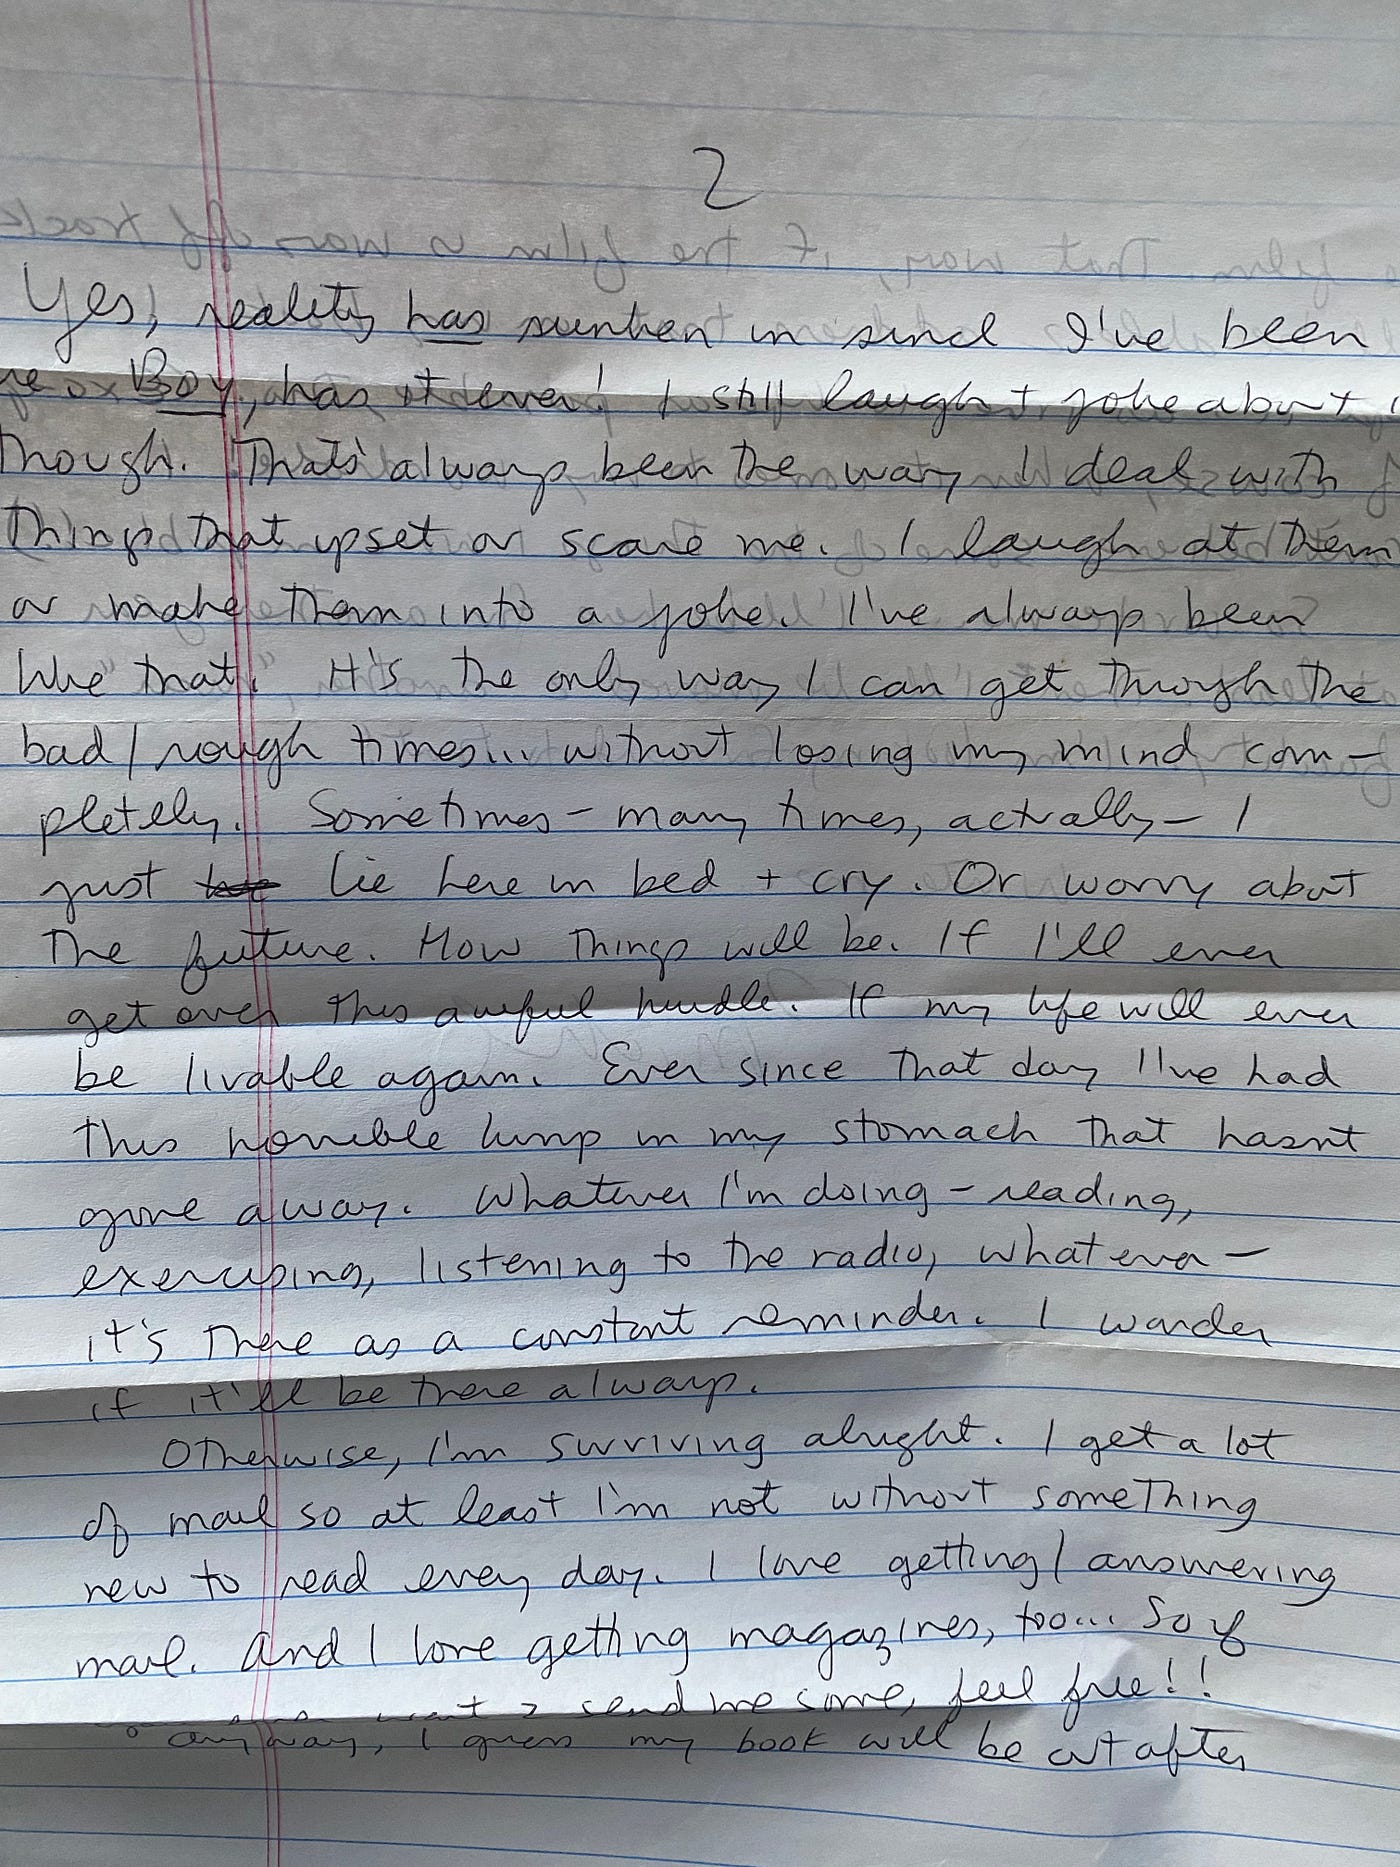 2
Yes, reality has sunken in since I've been
Boy, has it ever! I still laugh + joke about
though. That's always been the way I deal with
things that upset or scare me. I laugh at them
or make them into a joke. I've always been
like that. It's the only way I can get through the
bad/rough times... without losing my mind com-
pletely. Sometimes - many times, actually - I
just lie here in bed + cry. Or worry about
the future. How things will be. If I'll ever
get over this awful hurdle. If my life will ever
be livable again. Ever since that day I've had
this horrible lump in my stomach that hasnt
gone away. Whatever I'm doing - reading,
exercising, listening to the radio, whatever -
it's there as a constant reminder. I wonder
if it'll be there always.
Otherwise, I'm surviving alright. I get a lot
of mail so at least I'm not without something
new to read every day. I love getting/answering
mail. And I love getting magazines, too... So if
want 2 send me some, feel free!!
anyway, I guess my book will be out after